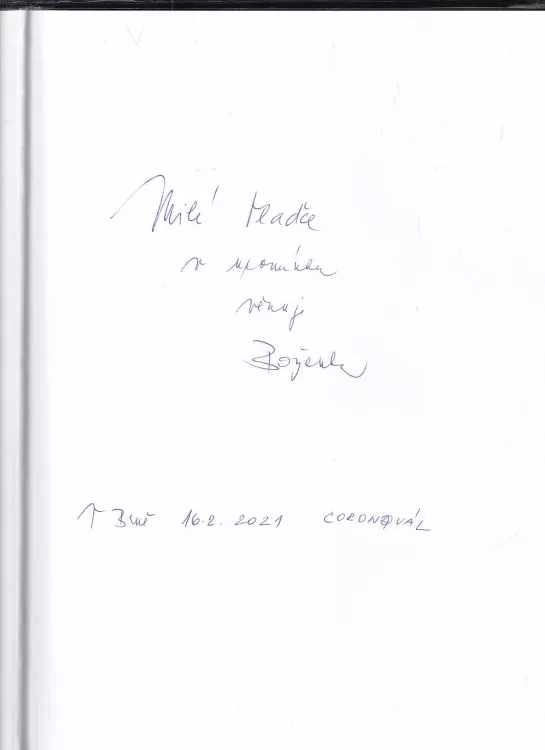 Milé Mladče
v upomínku
věnuje
Boženka
V Brně 16.2. 2021 CORONOVÁL